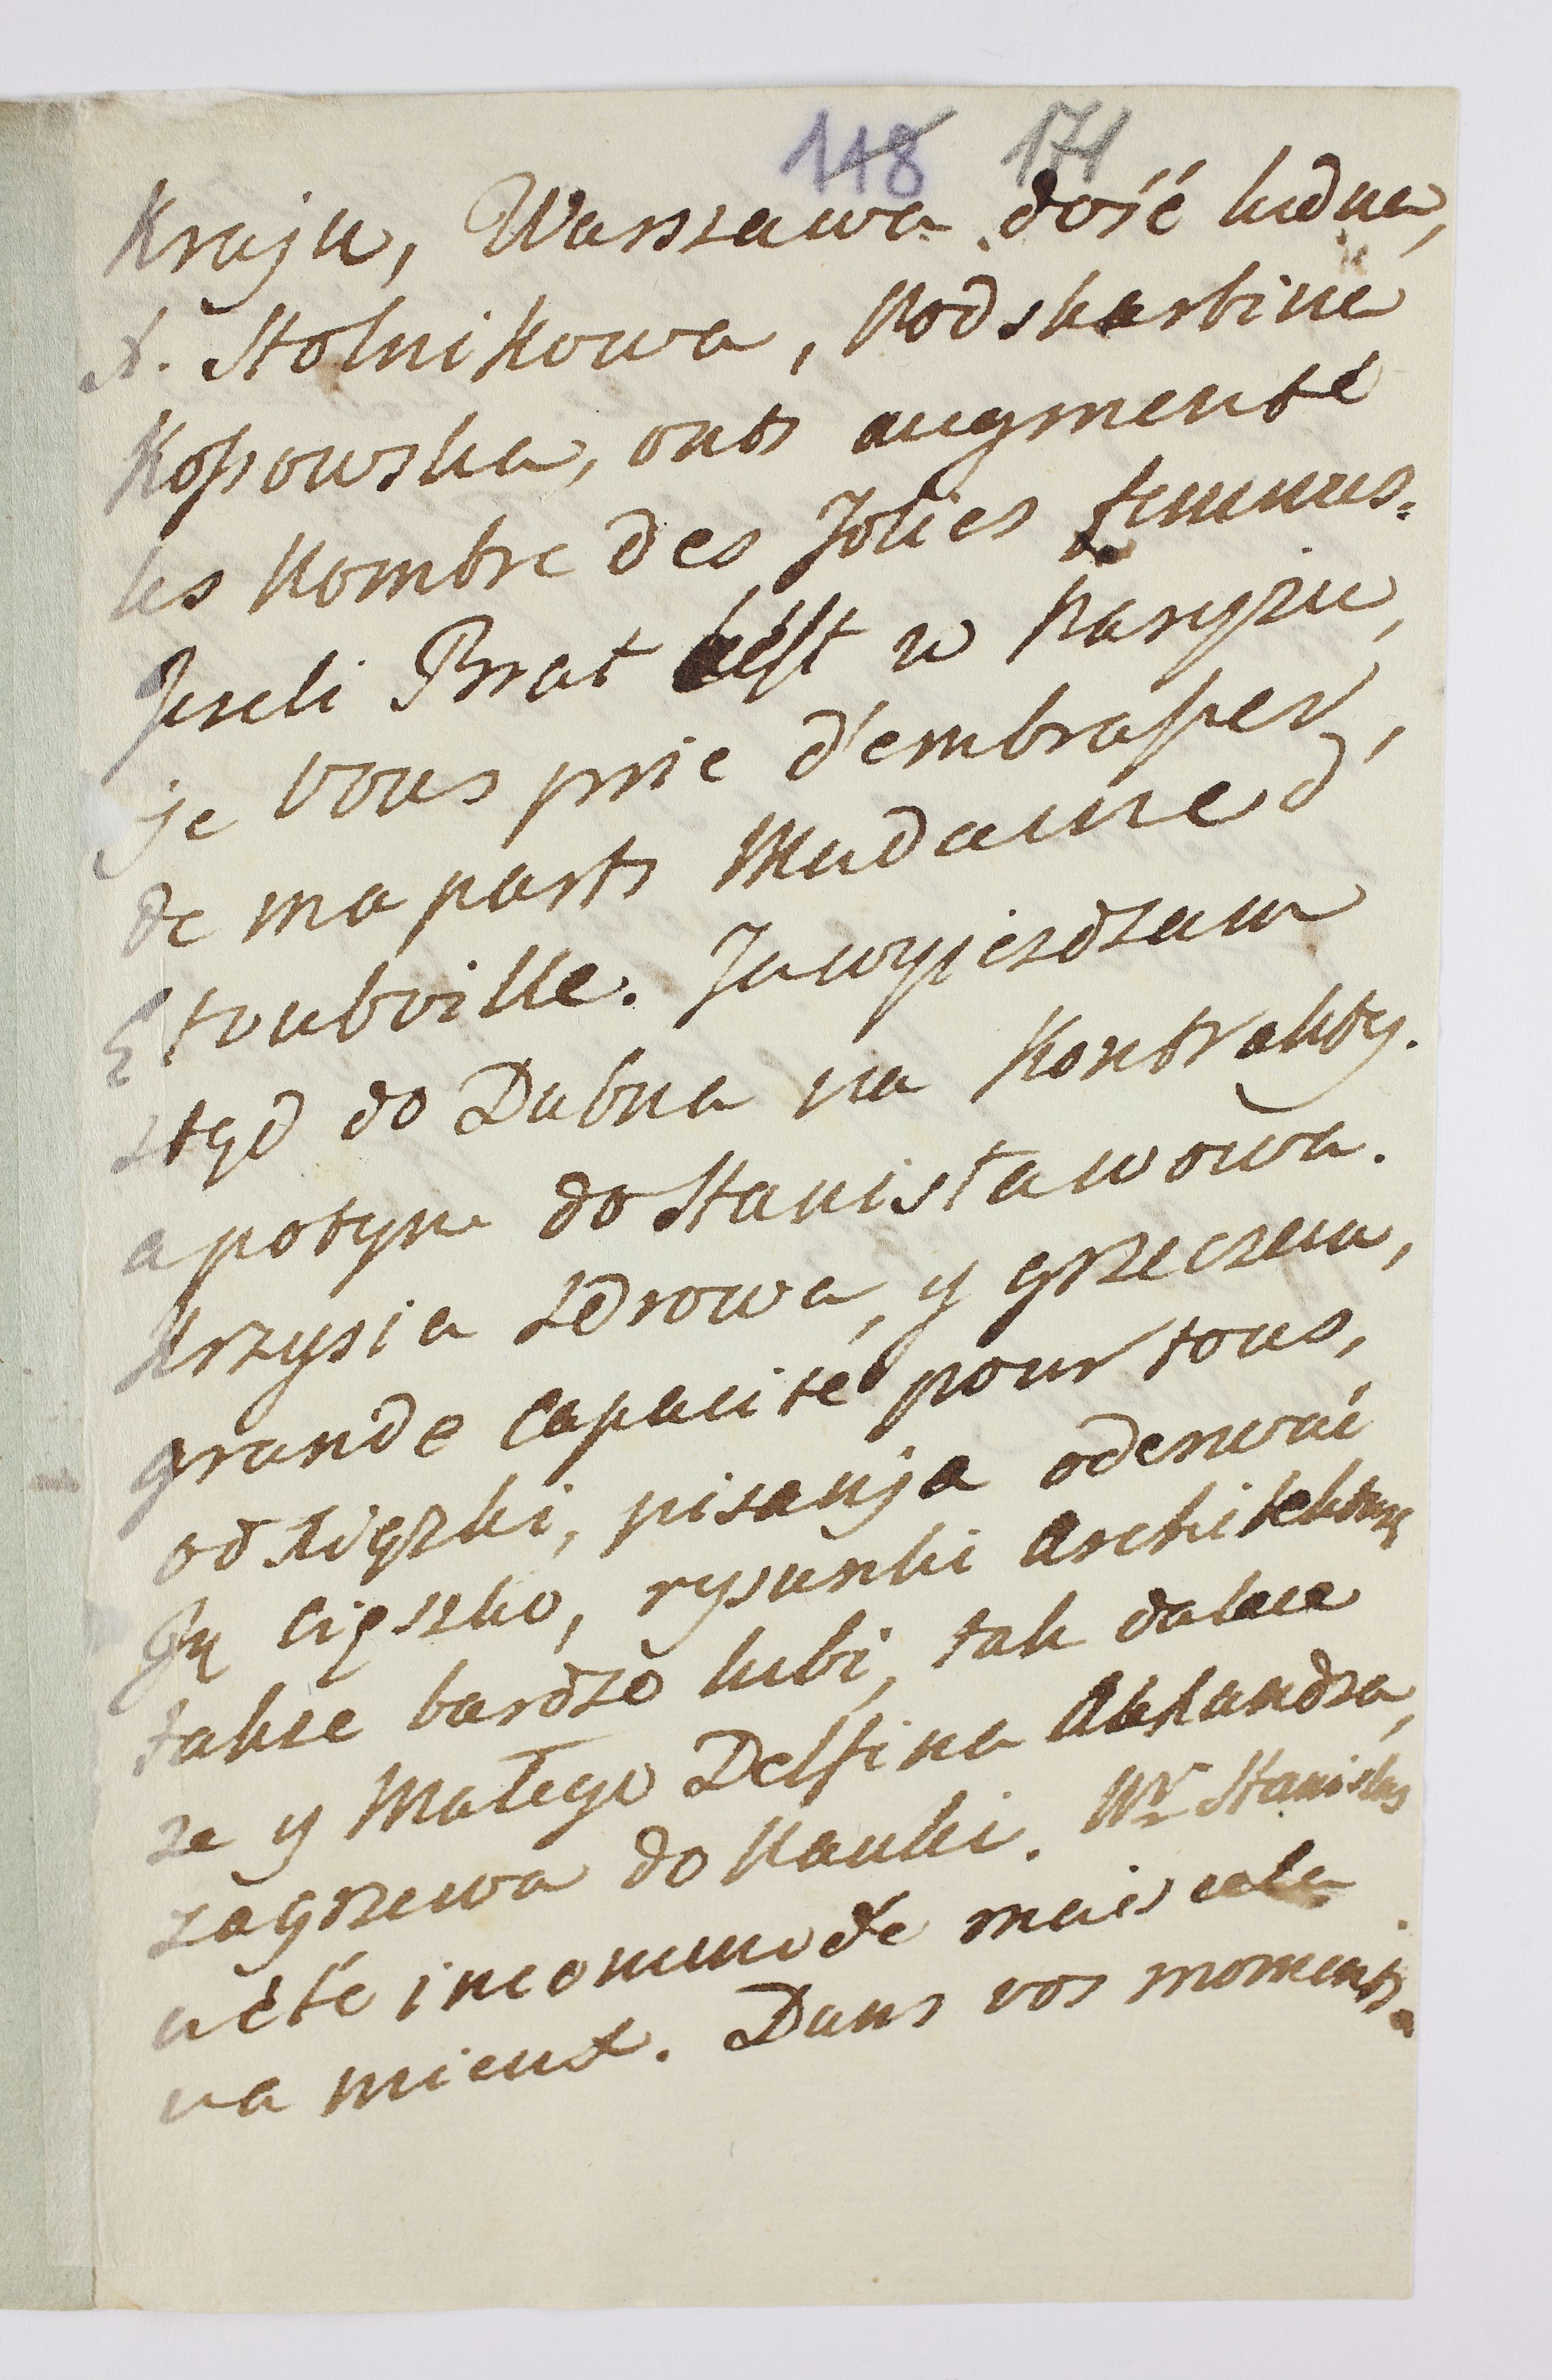 118 171
Kraju, Warszawa dość ludna,
X. Stolnikowa, Podskarbine
Kossowska, onts augmenté
les Nombre des Jolies femmes.
Jeseli Brat jest w Paryzu,
je vous prie d'embrasser,
de ma parts Madame d'
Etoubville. Ja wyjezdzam
ztąd do Dubna na Kontrakty.
a potym do Stanisławowa.
Krzysia zdrowa, y grzeczna,
grande capacité pour tous,
od Xiąszki, pisanja oderwać
Ją cięszko, rysunki Architektury
takze bardzo lubi, tak dalece
ze y Małego Delfina Alexandra,
zagrzewa do Nauki. Mr Stanislas
a été incommodé mais cela
va mieux. Dans vos moments